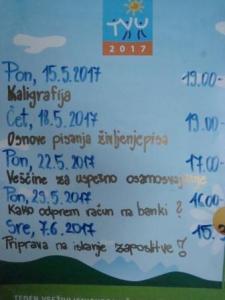 TVU
2017
Pon, 15.5.2017 19.00-
Kaligrafija
Čet, 18.5.2017 19.00-
Osnove pisanja življenjepisa
Pon, 22.5.2017 17.00-
Veščine za uspešno osamosvajanje
Pon, 29.5.2017 16.00-
Kako odprem račun na banki?
Sre, 7.6.2017 15.
Priprava na iskanje zaposlitve!